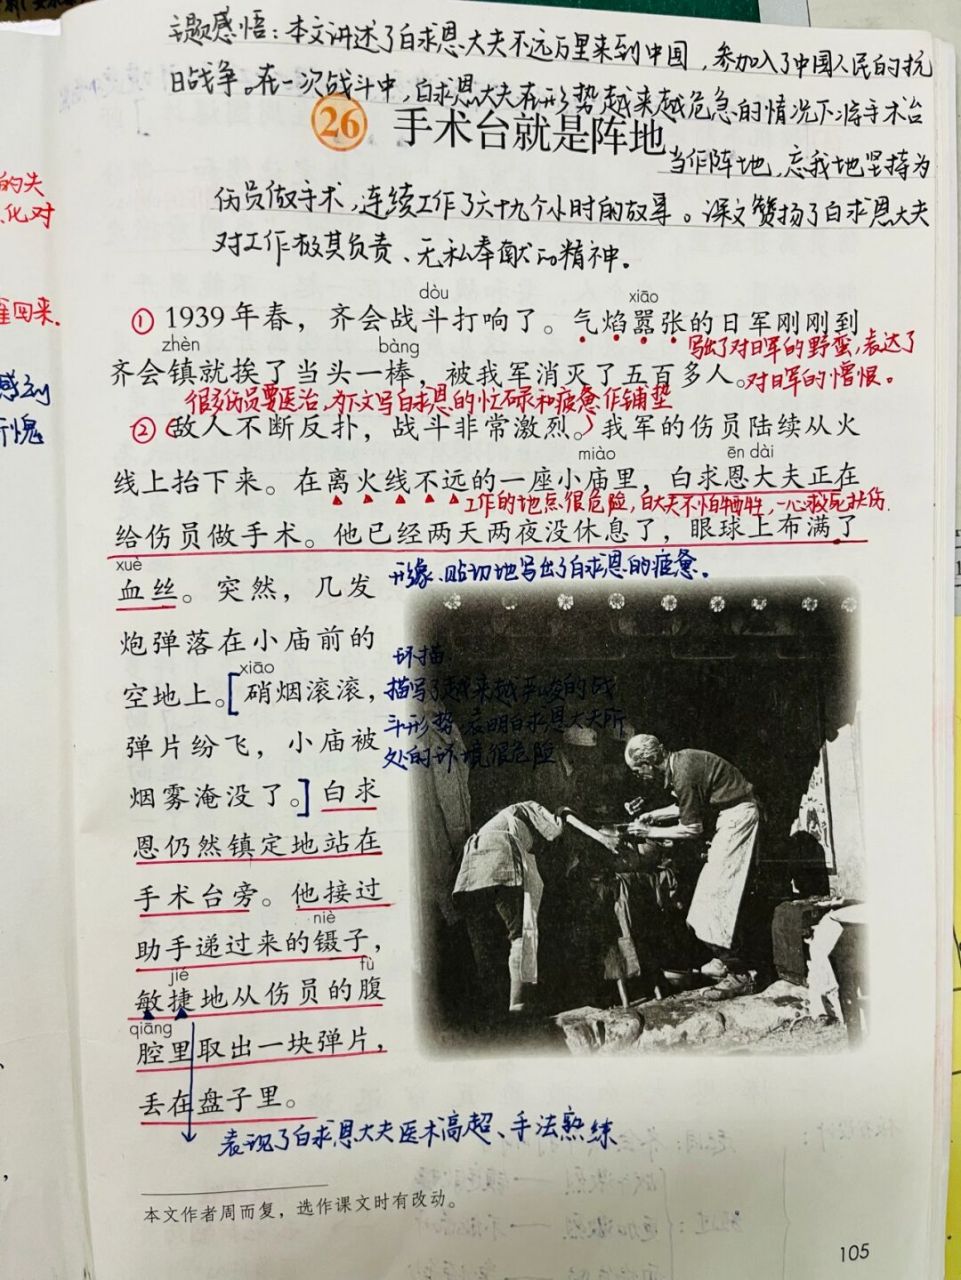 主题感悟：本文讲述了白求恩大夫不远万里来到中国，参加入了中国人民的抗
日战争。在一次战斗中，白求恩大夫在形势越来越危急的情况下，将手术台
26 手术台就是阵地
当作阵地，忘我地坚持为
伤员做手术，连续工作了六十九个小时的故事。课文赞扬了白求恩大夫
对工作极其负责、无私奉献的精神。
dòu xiāo
① 1939年春，齐会战斗打响了。气焰嚣张的日军刚刚到
写出了对日军的野蛮，表达了
zhèn bàng
齐会镇就挨了当头一棒，被我军消灭了五百多人。
对日军的憎恨。
很多伤员要医治，为下文写白求恩的忙碌和疲惫作铺垫
② 敌人不断反扑，战斗非常激烈。我军的伤员陆续从火
miào ēn dài
线上抬下来。在离火线不远的一座小庙里，白求恩大夫正在
工作的地点很危险，白大夫不怕牺牲，一心救死扶伤
给伤员做手术。他已经两天两夜没休息了，眼球上布满了
xuè
血丝。突然，几发
形象、贴切地写出了白求恩的疲惫。
炮弹落在小庙前的
xiāo
空地上。[硝烟滚滚，
弹片纷飞，小庙被
烟雾淹没了。]白求
环描
描写了越来越严峻的战
斗形势，表明白求恩大夫所
处的环境很危险
恩仍然镇定地站在
手术台旁。他接过
niè
助手递过来的镊子，
jié fù
敏捷地从伤员的腹
qiāng
腔里取出一块弹片，
丢在盘子里。
表现了白求恩大夫医术高超、手法熟练
本文作者周而复，选作课文时有改动。
105
的失
化对
回来.
感到
愧